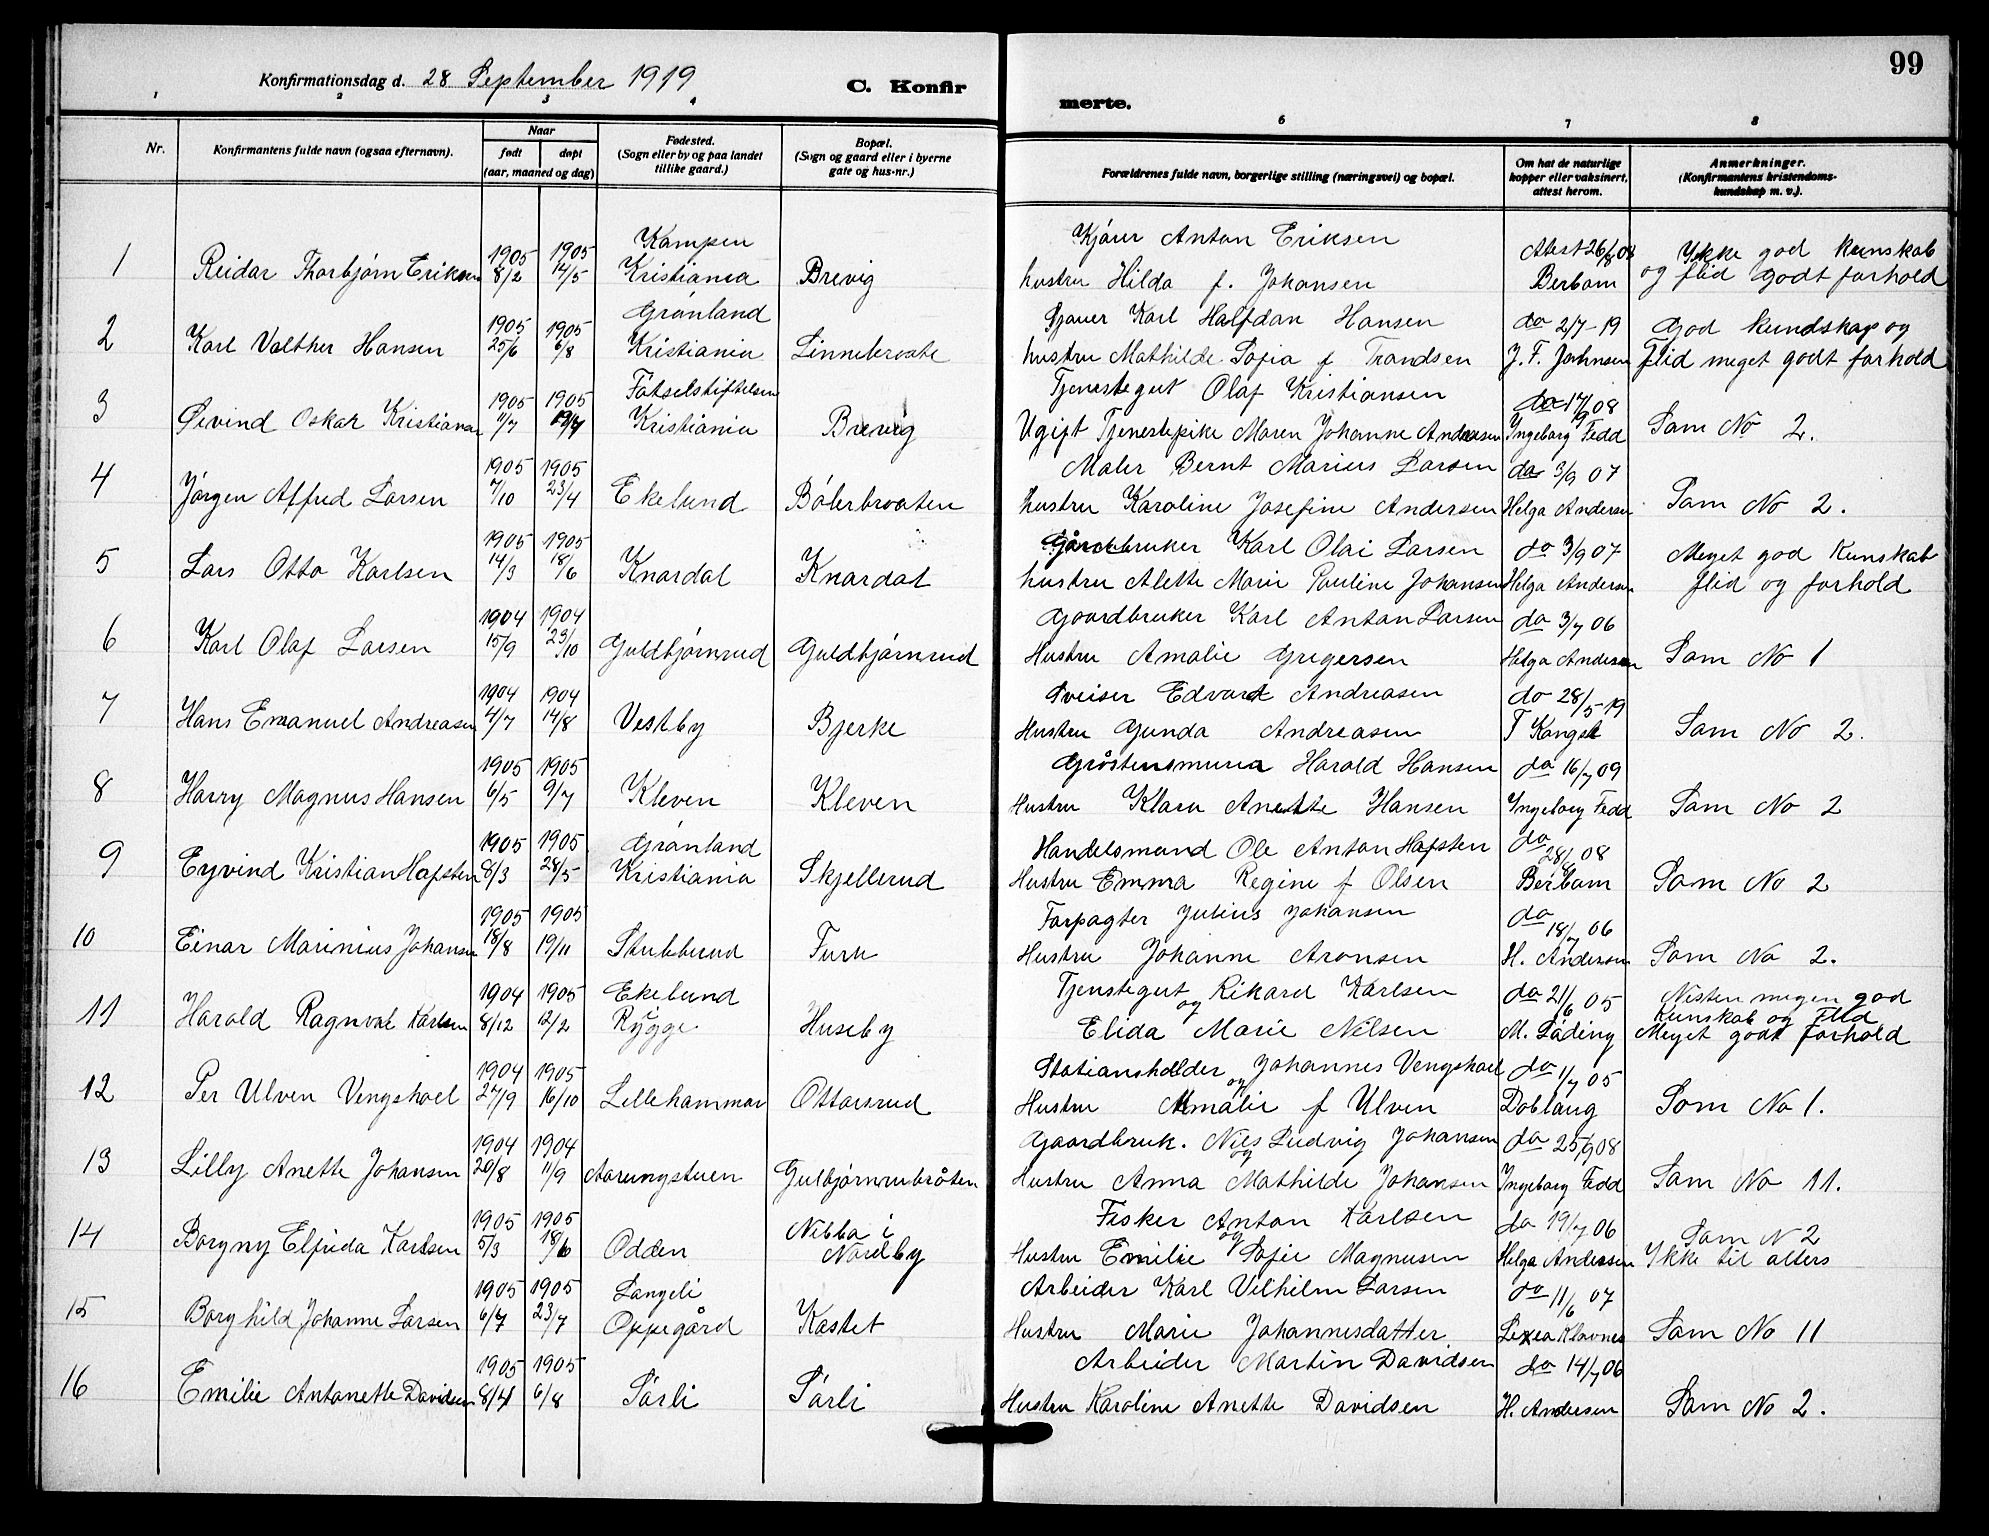 99
Konfirmationsdag d. 28 September 1919 C. Konfir merte.
1 2 3 4 6 7 8
Nr. Konfirmantens fulde navn (ogsaa efternavn). Naar født døpt (aar, maaned og dag) Fødested. (Sogn eller by og paa landet tillike gaard.) Bopæl. (Sogn og gaard eller i byerne gate og hus-nr.) Forældrenes fulde navn, borgerlige stilling (næringsvei) og bopæl. Om hat de naturlige kopper eller vaksinert, attest herom. Anmerkninger. (Konfirmantens kristendoms-kundskap m. v.).
1905 1905 Kampen Kjører Anton Eriksen Atest 26/8 08 Ykke god kunskab
1 Reidar Thorbjørn Eriksen 8/2 14/5 Kristiania Brevig hustru Hilda f. Johansen Berbom og flid godt forhold
1905 1905 Grønland Karl Halfdan Hansen do 2/7-19 God kundskap og
2 Karl Valther Hansen 25/6 6/8 Kristiania Linnebraate hustru Mathilde Sofia f Trondsen J. F. Johnsen Flid meget godt forhold
1905 1905 Fødselstiftelsen Tjenestegut Olaf Kristiansen do 17/9 08
3 Øivind Oskar Kristiansen 11/7 Kristiania Brevig Ugift Tjenestepike Maren Johanne Andreasen Ingeborg Fedd Som No 2.
1905 1905 Maler Bernt Marius Larsen do 3/9 07
4 Jørgen Alfred Larsen 7/10 23/4 Ekelund Bølerbraaten hustru Karoline Josefine Andersen Helga Andersen Som No 2.
1905 1905 Gårdbruker Karl Olai Larsen do 3/9 07 Meget god Kunskab
5 Lars Otto Karlsen 14/3 18/6 Knardal Knardal hustru Alette Marie Pauline Johansen Helga Andersen flid og forhold
1904 1904 Gaardbruker Karl Anton Larsen do 3/7 06
6 Karl Olaf Larsen 15/9 23/10 Guldbjørnrud Guldbjørnrud Hustru Amalie Gregersen Helga Andersen Som No 1
1904 1904 Sveiser Edvard Andreasen do 28/5-19
7 Hans Emanuel Andreasen 4/7 14/8 Vestby Bjerke Hustru Gunda Andreasen T Som No 2.
1905 1905 Gråstensmurer Harald Hansen do 16/7 09
8 Harry Magnus Hansen 6/5 9/7 Kleven Kleven Hustru Klara Anette Hansen Yngeborg Fedd Som No 2
1905 1905 Grønland Handelsmand Ole Anton Hafsten do 28/8 08
9 Eyvind Kristian Hafsten 8/3 28/5 Kristiania Skjellerud Hustru Emma Regine f Olsen Berbom Som No 2
1905 1905 Forpagter Julius Johansen do 18/7 06
10 Einar Marinius Johansen 18/8 19/11 Stubberud Furu Hustru Johanne Aronsen H. Andersen Som No 2.
1904 1905 Ekelund Tjenstegut og Rikard Karlsen do 21/6 05 Nesten megen god Kunskab og Flid
11 Harald Ragnval Karlsen 8/12 12/2 Rygge Huseby Elida Marie Nilsen M. Låding Meget godt forhold
1904 1905 Stationsholder og Johannes Vengshoel do 1/7 05
12 Per Ulven Vengshoel 27/9 16/10 Lillehammar Ottarsrud Hustru Amalie f Ulven Doblaug Som No 1.
1904 1904 Gaardbruk. Nils Ludvig Johansen og do 25/9 08
13 Lilly Anette Johansen 20/8 11/9 Aarungstuen Gulbjørnrubråten Hustru Anna Mathilde Johansen Yngeborg Fedd Som No 11.
1905 1905 Nebba i Fisker Anton Karlsen og do 19/7 06 Som N 2
14 Borgny Elfrida Karlsen 5/3 18/6 Odden Nordby Hustru Emilie Sofie Magnusen Helga Andersen Ykke til alters
1905 1905 Langeli Arbeider Karl Vilhelm Larsen do 11/6 07
15 Borghild Johanne Larsen 6/7 23/7 Oppegård Kastet Hustru Marie Johannesdatter Klavnes Som No 11
1905 1905 Arbeider Martin Davidsen do 14/7 06
16 Emilie Antonette Davidsen 8/4 6/8 Sørli Sørli Hustru Karoline Anette Davidsen H. Andersen Som No 2.